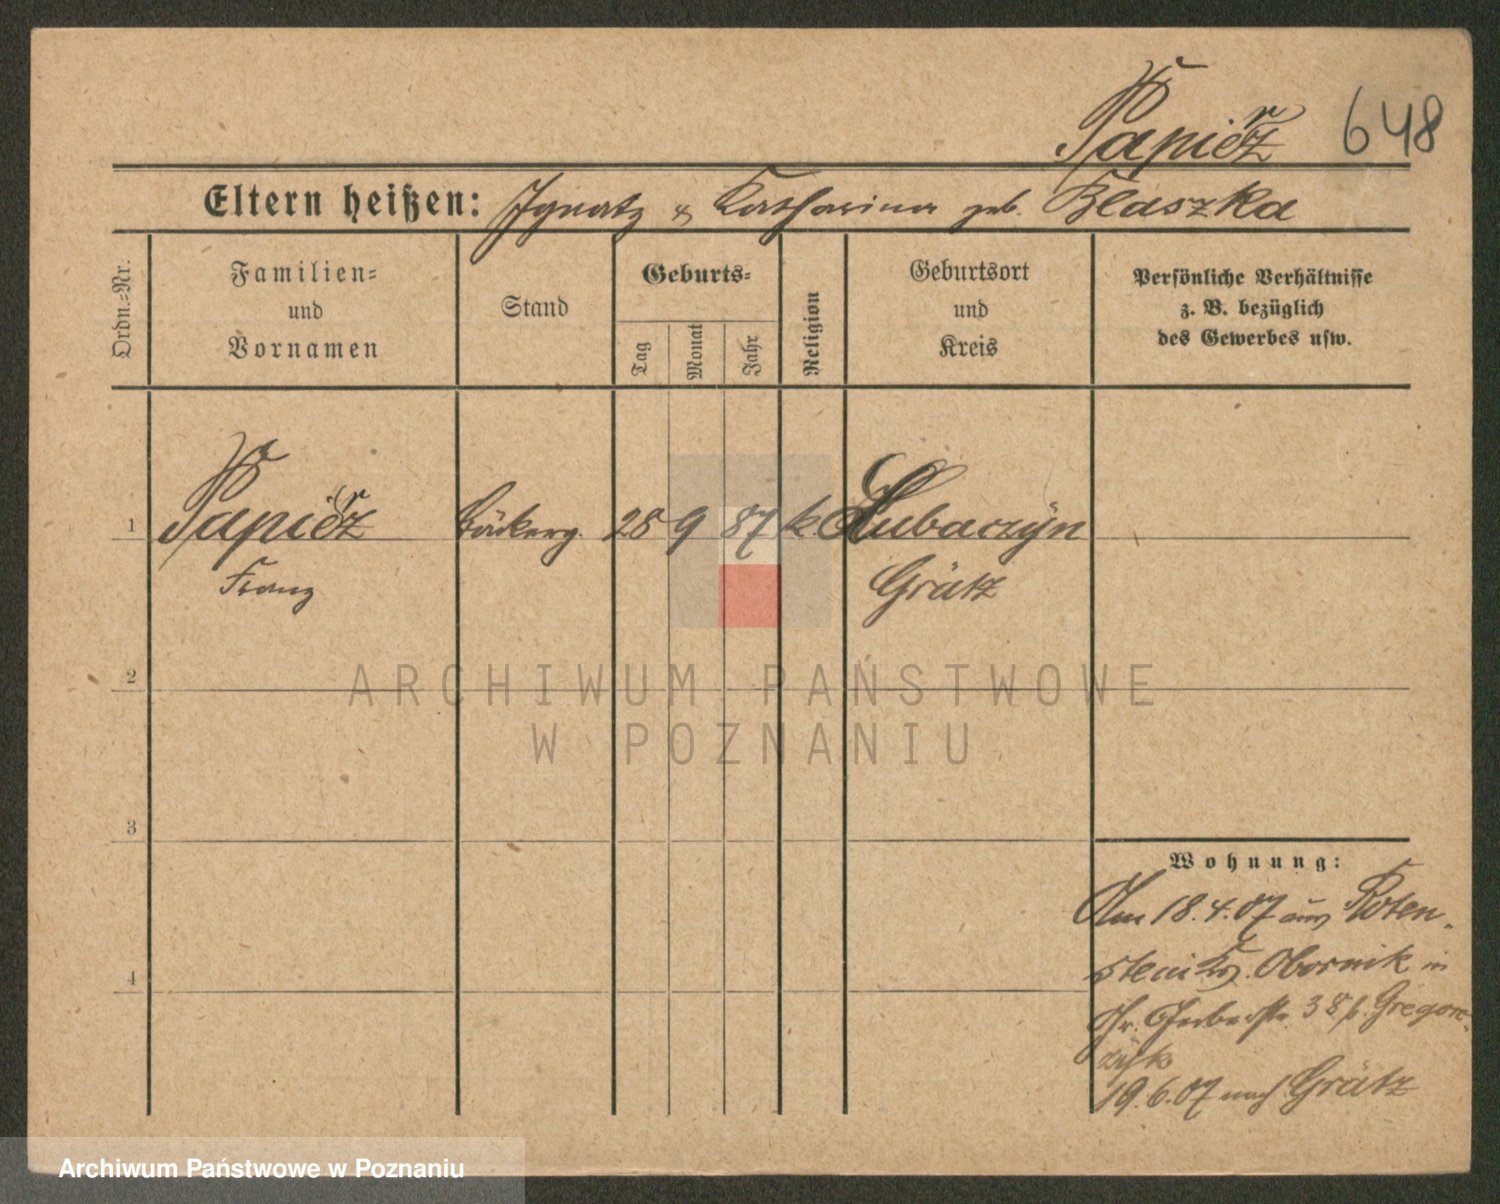 Papierz 648
Eltern heißen: Ignatz & Katharina geb. Blaszka
Ordn.-Nr.
Familien-
und
Vornamen
Stand
Geburts-
Tag
Monat
Jahr
Religion
Geburtsort
und
Kreis
Persönliche Verhältnisse
z. B. bezüglich
des Gewerbes usw.
1 Papierz Bäckerg. 28 9 87 k. Lubaczyn
Franz Grätz
2
ARCHIWUM PAŃSTWOWE
W POZNANIU
3
Wohnung:
Am 18.4.07 aus Roten-
stein Krs. Obornik in
Gerberstr. 38 b. Gregor-
czyk
4
19.6.07 nach Grätz
Archiwum Państwowe w Poznaniu